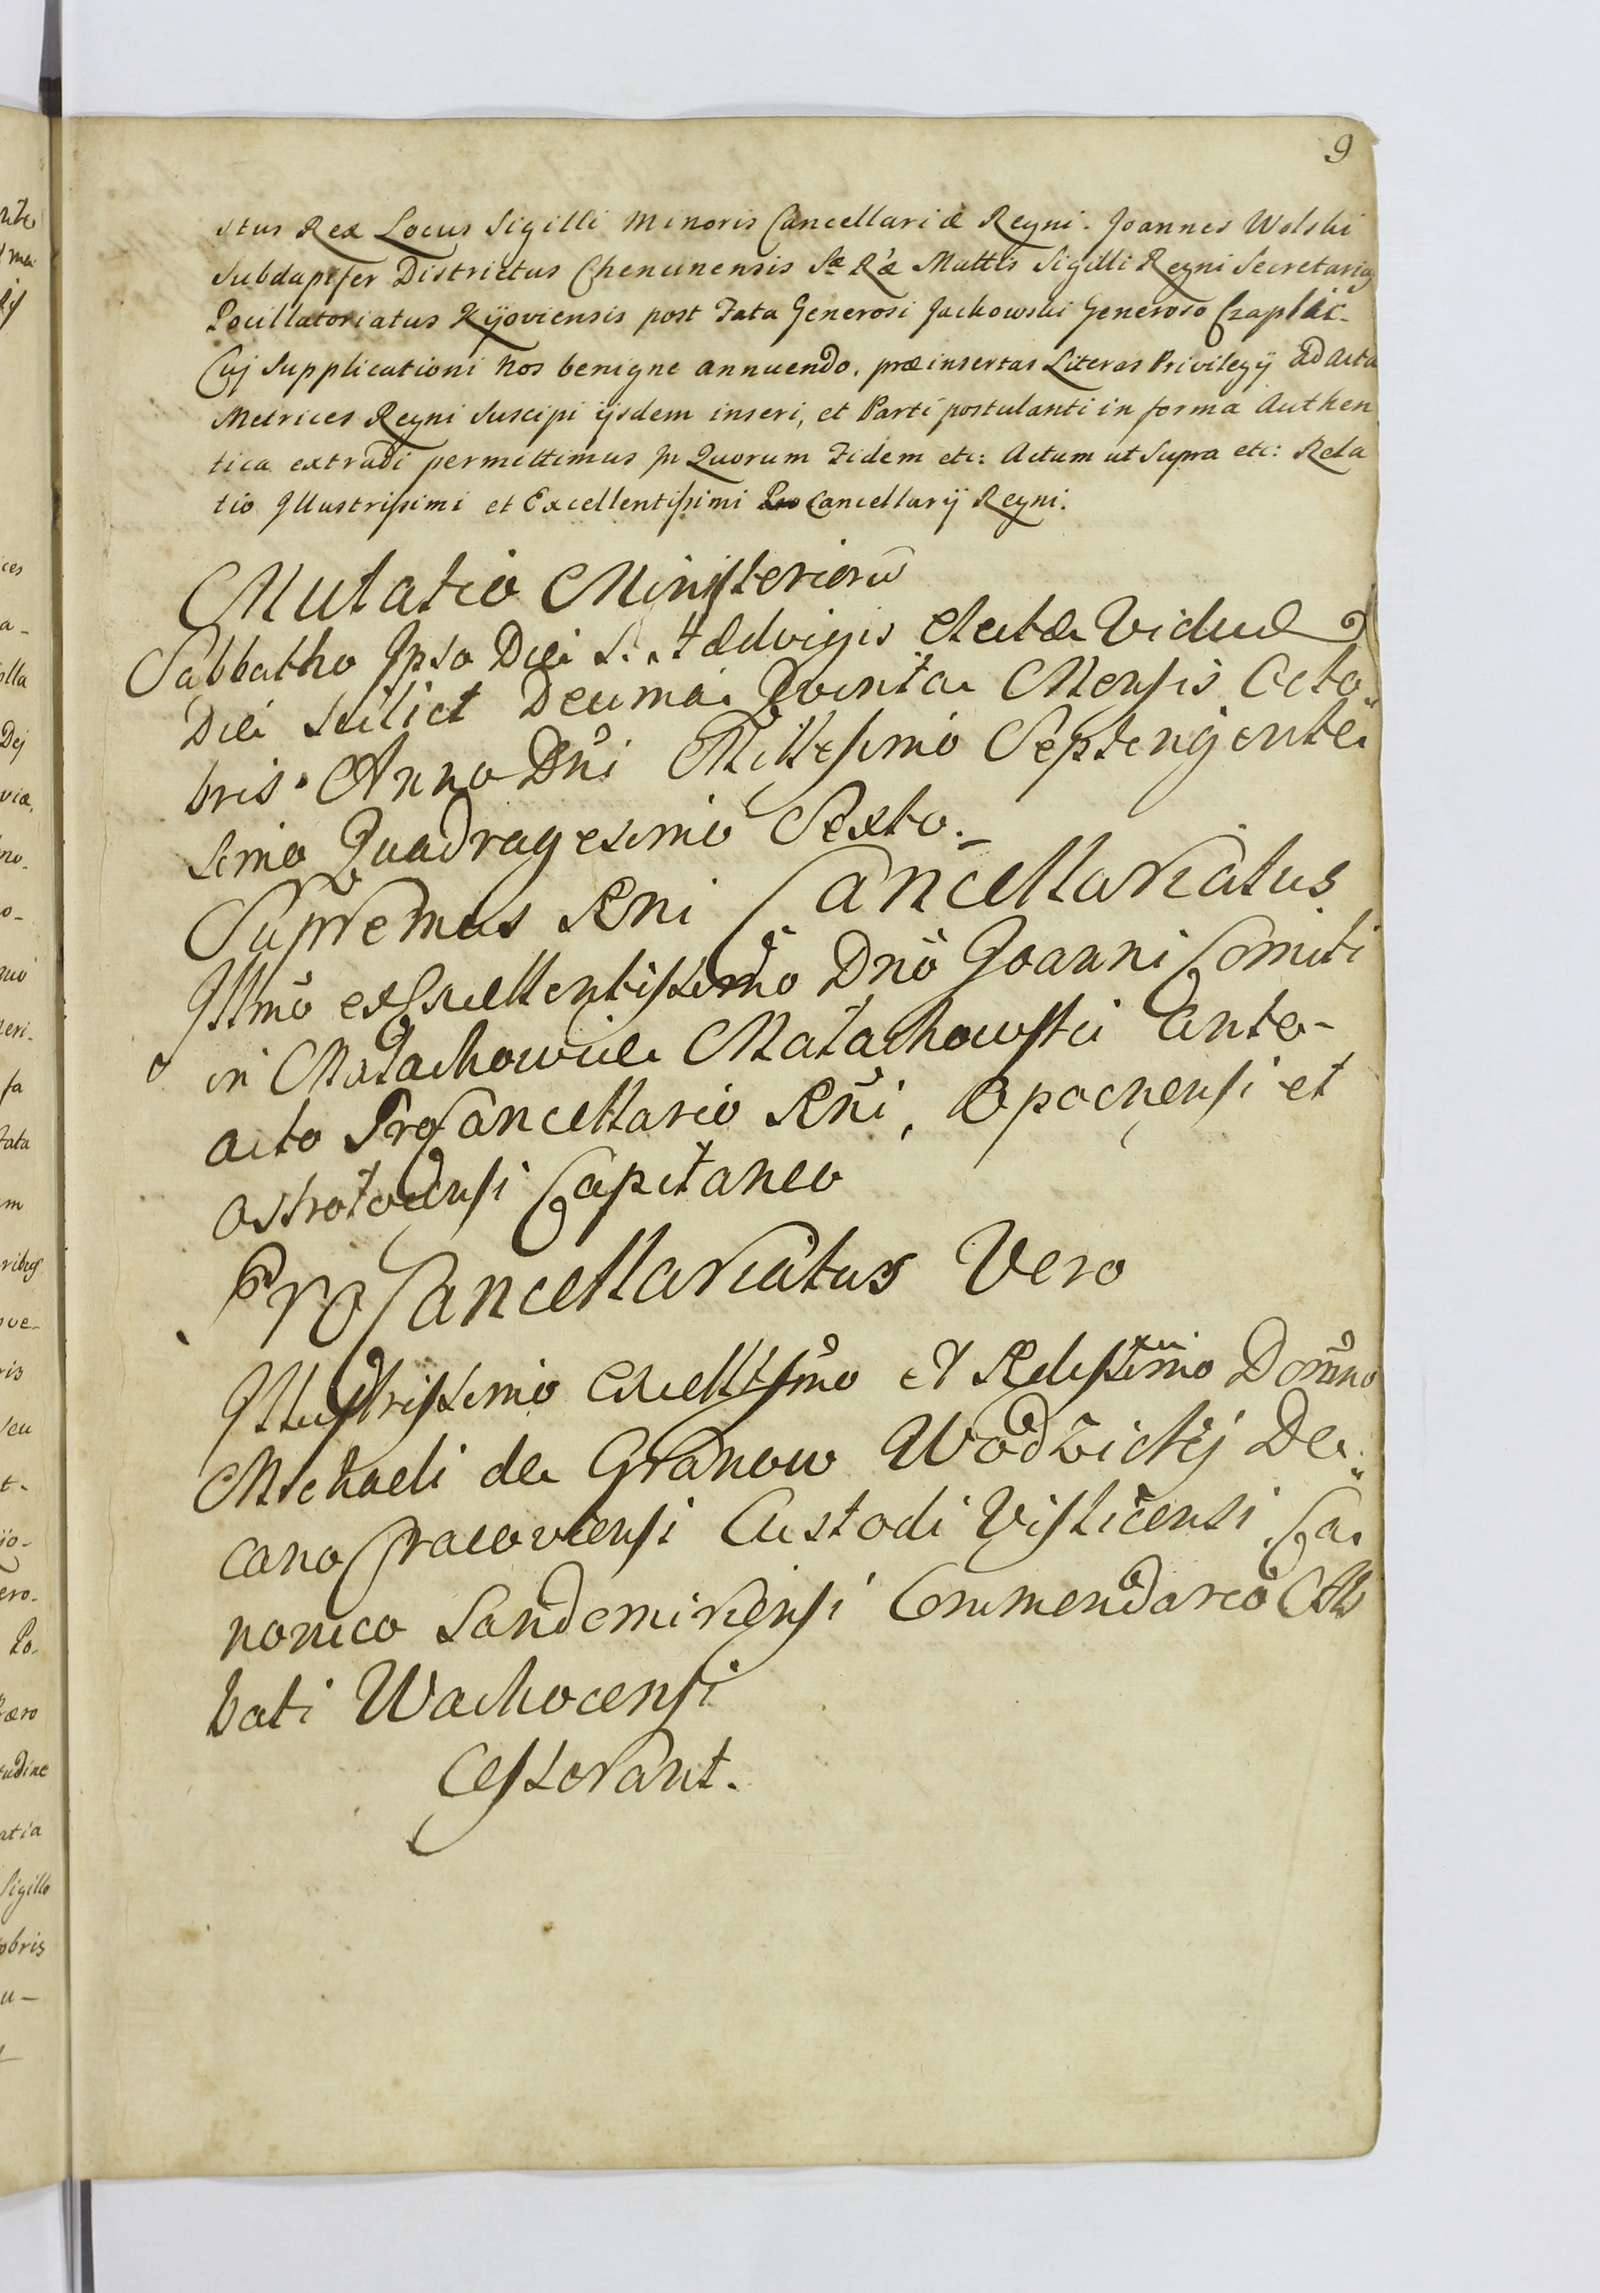 9
stus Rex Locus Sigilli Minoris Cancellariæ Regni. Joannes Wolski
Subdapifer Districtus Chencinensis Sæ Ræ Mattis Sigilli Regni Secretariq
Pocillatoriatus Kijoviensis post Fata Generosi Jackowski Generoso Czaplic-
Cuj Supplicationi Nos benigne annuendo, præinsertas Literas Privilegij ad Acta
Metrices Regni Suscipi ijsdem inseri, et Parti postulanti in forma Authen
tica extradi permittimus Jn Quorum Fidem etc: Actum ut Supra etc: Rela
tio Jllustrissimi et Excellentissimi Pro Cancellarij Regni.
Mutatio Ministeriorū
Sabbatho Jpso Die S. Hædvigis Electæ Viduæ
Die Scilict Decima Qvinta Mensis Octo
bris Anno Dni Millesimo Septengente
simo Quadragesimo Sexto.
Supremus Rni Cancellariatus
Jllmo exScellentissimo Dno Joanni Comiti
in Małachowice Małachowski Ante-
acto ProCancellario Rni, Opocnensi et
Ostrołecensi Capitaneo
ProCancellariatus Vero
Jllustrissimo Excellssmo et Rdissimo Domno
Michaeli de Granow Wodzickij De
cano Cracoviensi Custodi Visliciensi Ca
nonico Sandomiriensi Commendario Ab
bati Wachocensi
Cesserant.